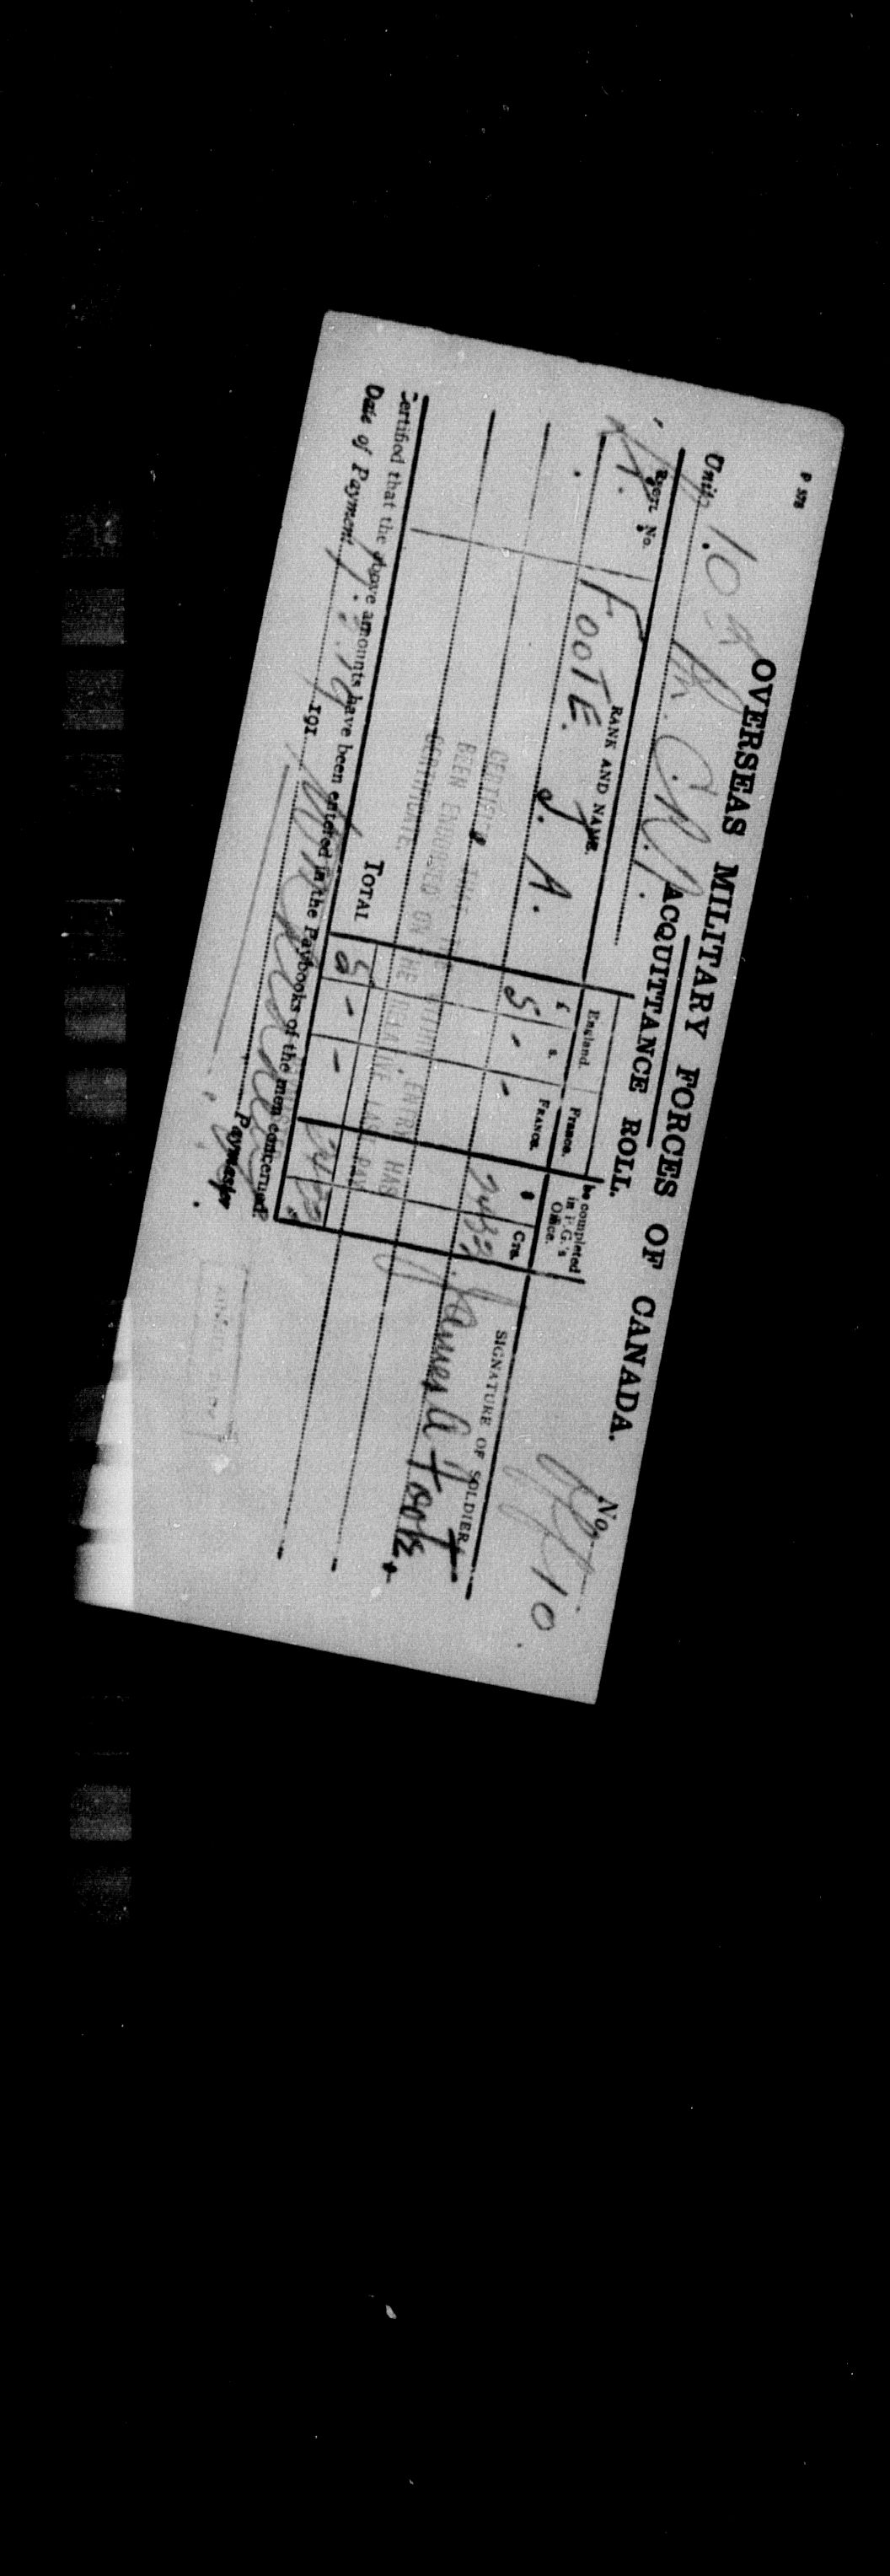 P 578
OVERSEAS MILITARY FORCES OF CANADA.
Unit, 10th Bn. C.R.T. ACQUITTANCE ROLL. No. 10
Regtl. No. RANK AND NAME. England. France. be completed in P.G.'s Office. SIGNATURE OF SOLDIER.
£ s. FRANCS. $ Cts.
FOOTE. J. A. 5 - - 24 33 James A Foote.
CERTIFIED THAT THE WITHIN ENTRY HAS
BEEN ENDORSED ON THE RELATIVE LAST PAY
CERTIFICATE.
TOTAL 5 - - 24 33
Certified that the above amounts have been entered in the Paybooks of the men concerned.
Date of Payment
for
Paymaster